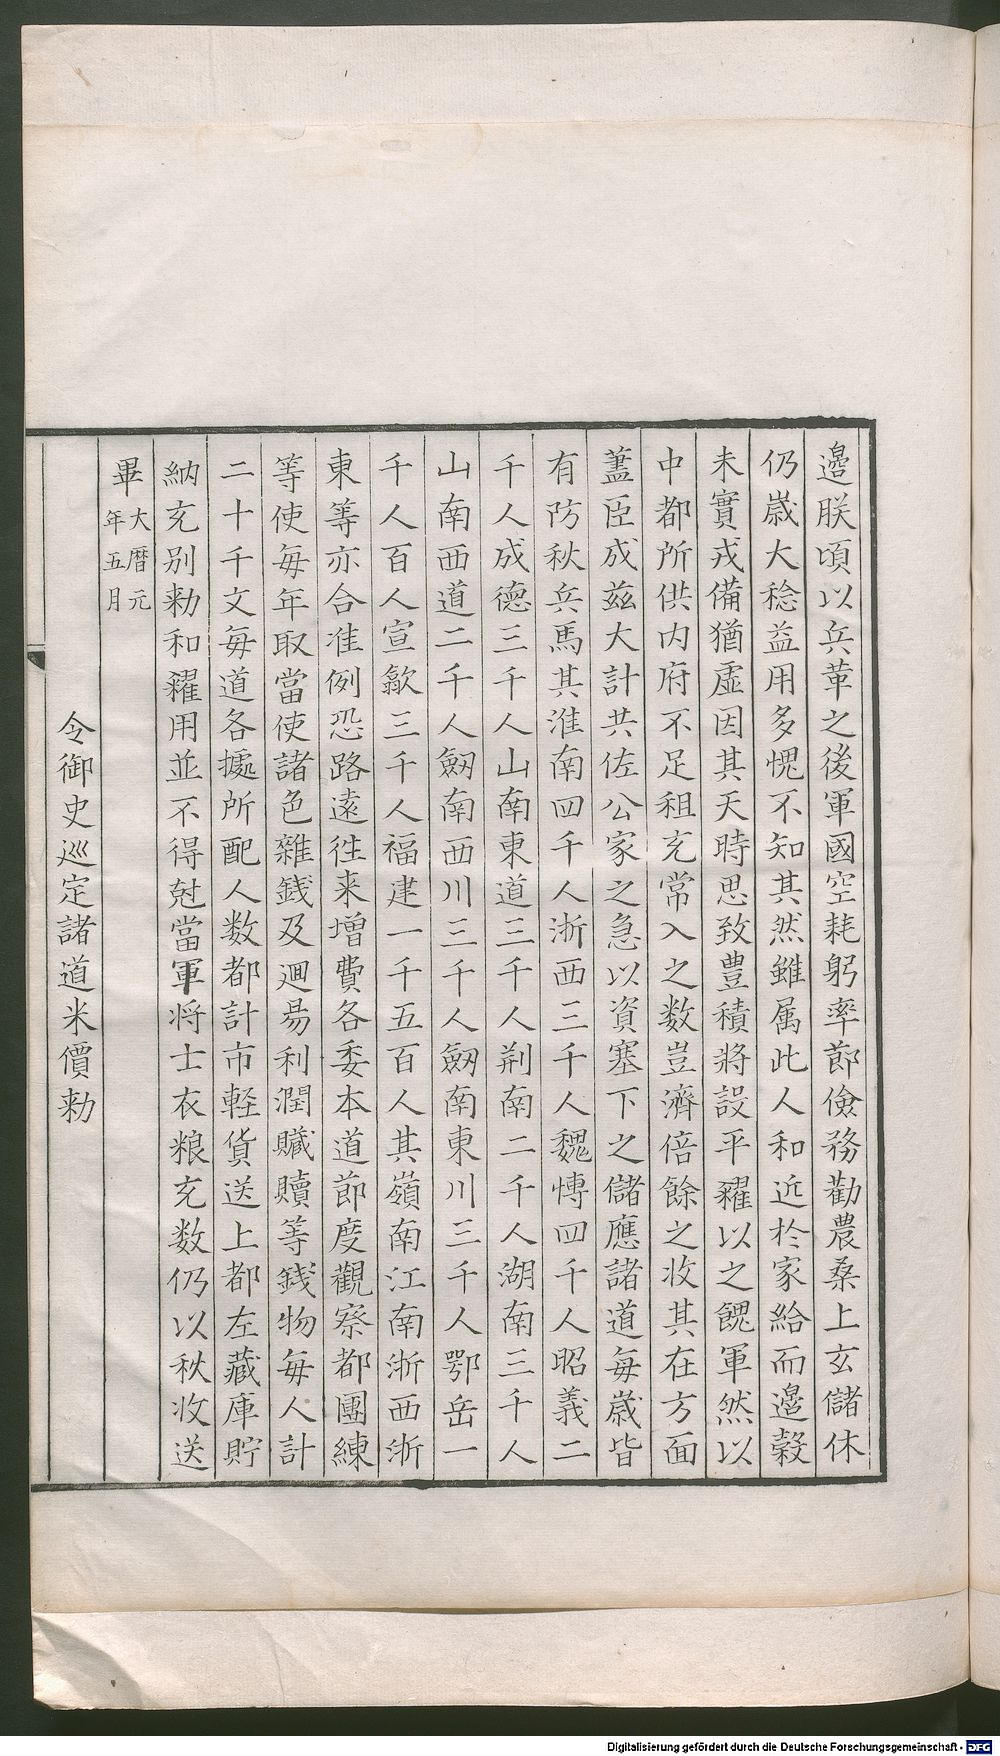 邉朕頃以兵革之後軍國空耗躬率節儉務勸農桑上玄儲休
仍歲大稔益用多愧不知其然雖属此人和近於家給而邉穀
未實戎備猶虛因其天時思致豊積將設平糴以之餽軍然以
中都所供内府不足租充常入之数豈濟倍餘之收其在方面
藎臣成兹大計共佐公家之急以資塞下之儲應諸道每歲皆
有防秋兵馬其淮南四千人浙西三千人魏博四千人昭義二
千人成德三千人山南東道三千人荆南二千人湖南三千人
山南西道二千人劔南西川三千人劔南東川三千人鄂岳一
千人百人宣歙三千人福建一千五百人其嶺南江南浙西浙
東等亦合准例恐路遠徃来增費各委本道節度觀察都團練
等使每年取當使諸色雜錢及廻易利潤贓贖等錢物每人計
二十千文每道各據所配人数都計市軽貨送上都左藏庫貯
納充别勑和糴用並不得尅當軍将士衣粮充数仍以秋收送
畢大曆元年五月
令御史巡定諸道米價勑
Digitalisierung gefördert durch die Deutsche Forschungsgemeinschaft - DFG